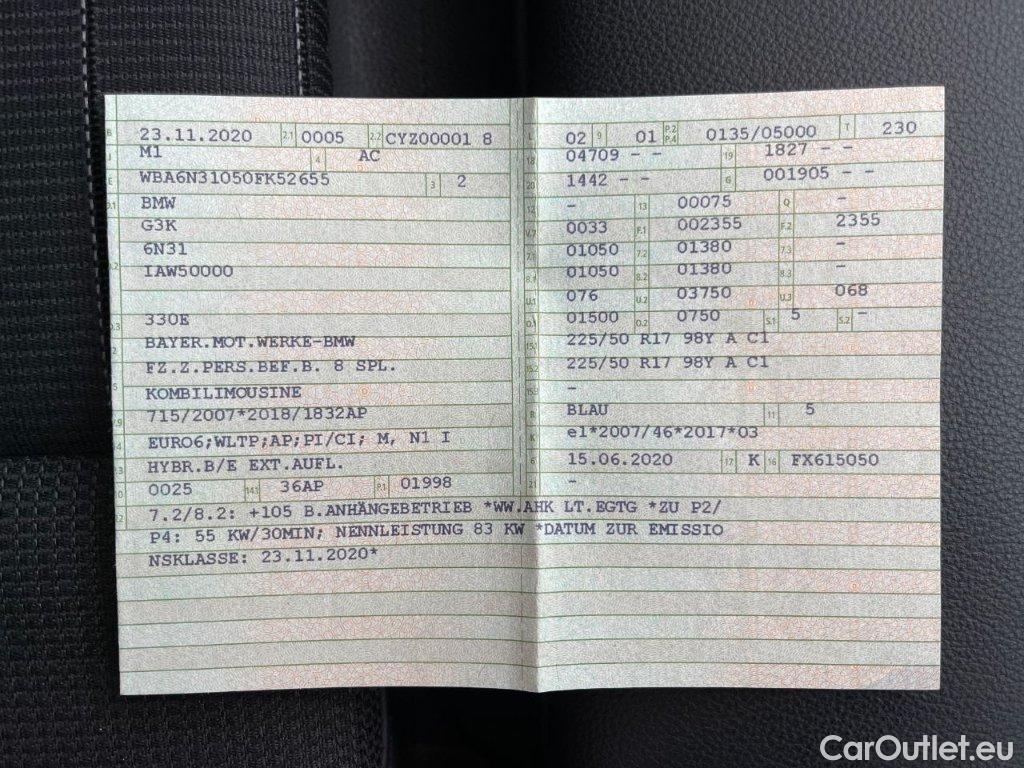 B 23.11.2020 2.1 0005 2.2 CYZ00001 8
J M1 4 AC
E WBA6N31050FK52655 3 2
D.1 BMW
G3K
D.2 6N31
IAW50000
D.3 330E
2 BAYER.MOT.WERKE-BMW
5 FZ.Z.PERS.BEF.B. 8 SPL.
KOMBILIMOUSINE
V.9 715/2007*2018/1832AP
14 EURO6;WLTP;AP;PI/CI; M, N1 I
HYBR.B/E EXT.AUFL.
10 0025 14.1 36AP P.1 01998
L 02 9 01 P.2 P.4 0135/05000 T 230
18 04709 - - 19 1827 - -
20 1442 - - G 001905 - -
12 - 13 00075 Q -
V.7 0033 F.1 002355 F.2 2355
7.1 01050 7.2 01380 7.3 -
8.1 01050 8.2 01380 8.3 -
U.1 076 U.2 03750 U.3 068
O.1 01500 O.2 0750 S.1 5 S.2 -
15.1 225/50 R17 98Y A C1
15.2 225/50 R17 98Y A C1
15.3 -
R BLAU 11 5
K e1*2007/46*2017*03
6 15.06.2020 17 K 16 FX615050
21 -
22 7.2/8.2: +105 B.ANHÄNGEBETRIEB *WW.AHK LT.EGTG *ZU P2/
P4: 55 KW/30MIN; NENNLEISTUNG 83 KW *DATUM ZUR EMISSIO
NSKLASSE: 23.11.2020*
CarOutlet.eu